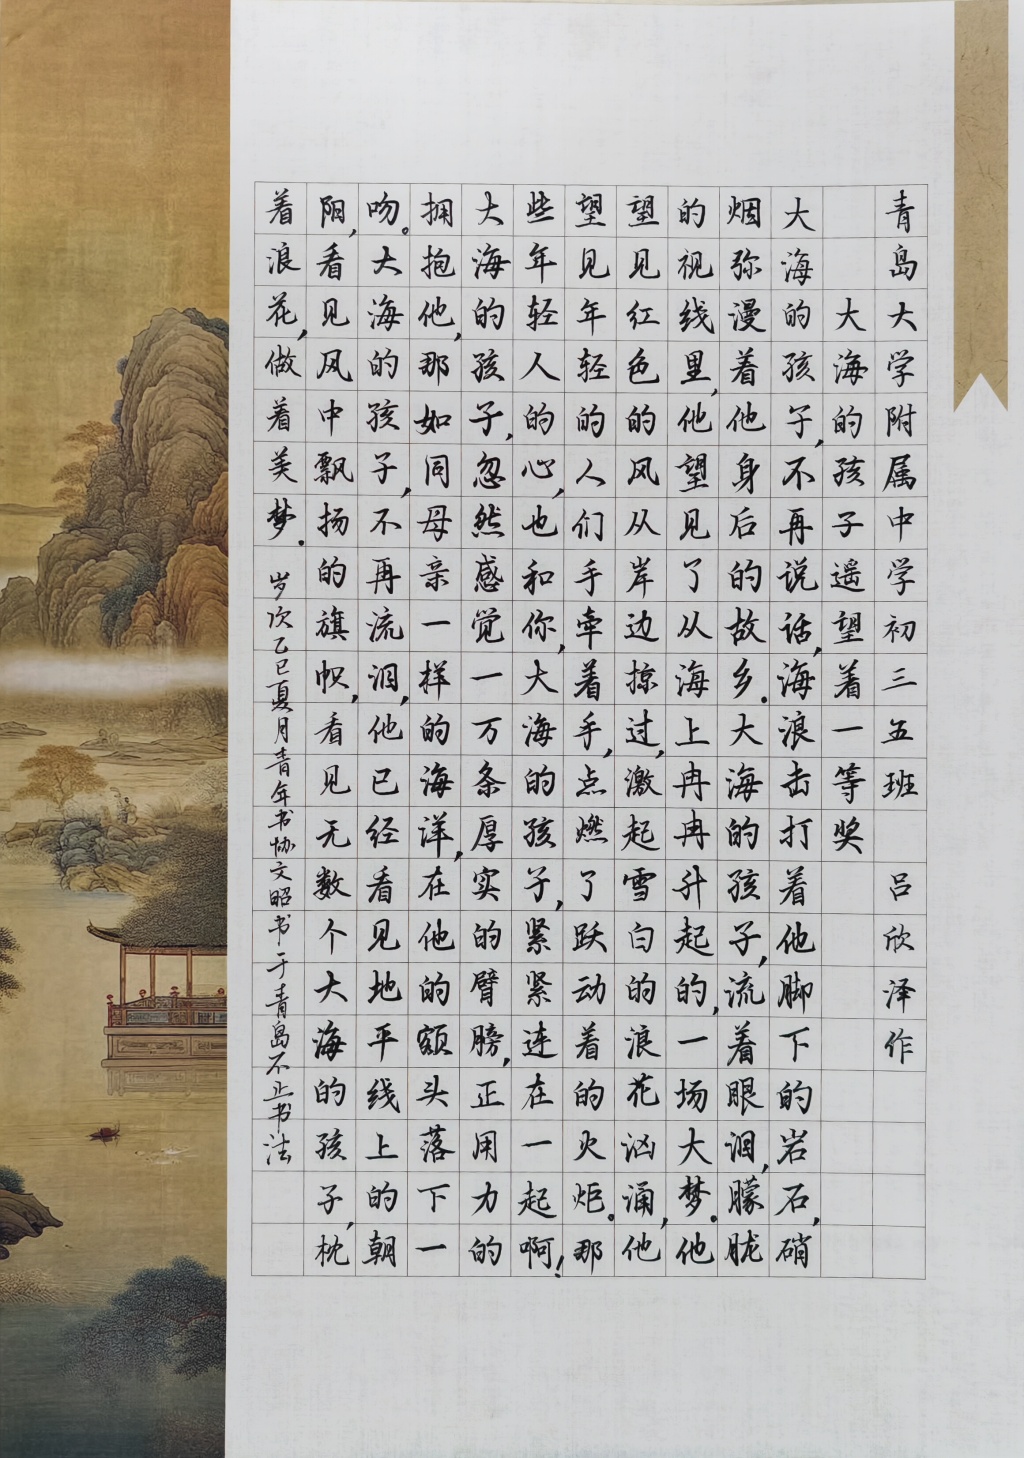 青岛大学附属中学初三五班 吕欣泽作
大海的孩子遥望着一等奖
大海的孩子,不再说话,海浪击打着他脚下的岩石,硝
烟弥漫着他身后的故乡.大海的孩子,流着眼泪,朦胧
的视线里,他望见了从海上冉冉升起的,一场大梦.他
望见红色的风从岸边掠过,激起雪白的浪花汹涌,他
望见年轻的人们手牵着手,点燃了跃动着的火炬.那
些年轻人的心,也和你,大海的孩子,紧紧连在一起啊!
大海的孩子,忽然感觉一万条厚实的臂膀,正用力的
拥抱他,那如同母亲一样的海洋,在他的额头落下一
吻。大海的孩子,不再流泪,他已经看见地平线上的朝
阳,看见风中飘扬的旗帜,看见无数个大海的孩子,枕
着浪花,做着美梦.岁次乙巳夏月青年书协文昭书于青岛不止书法